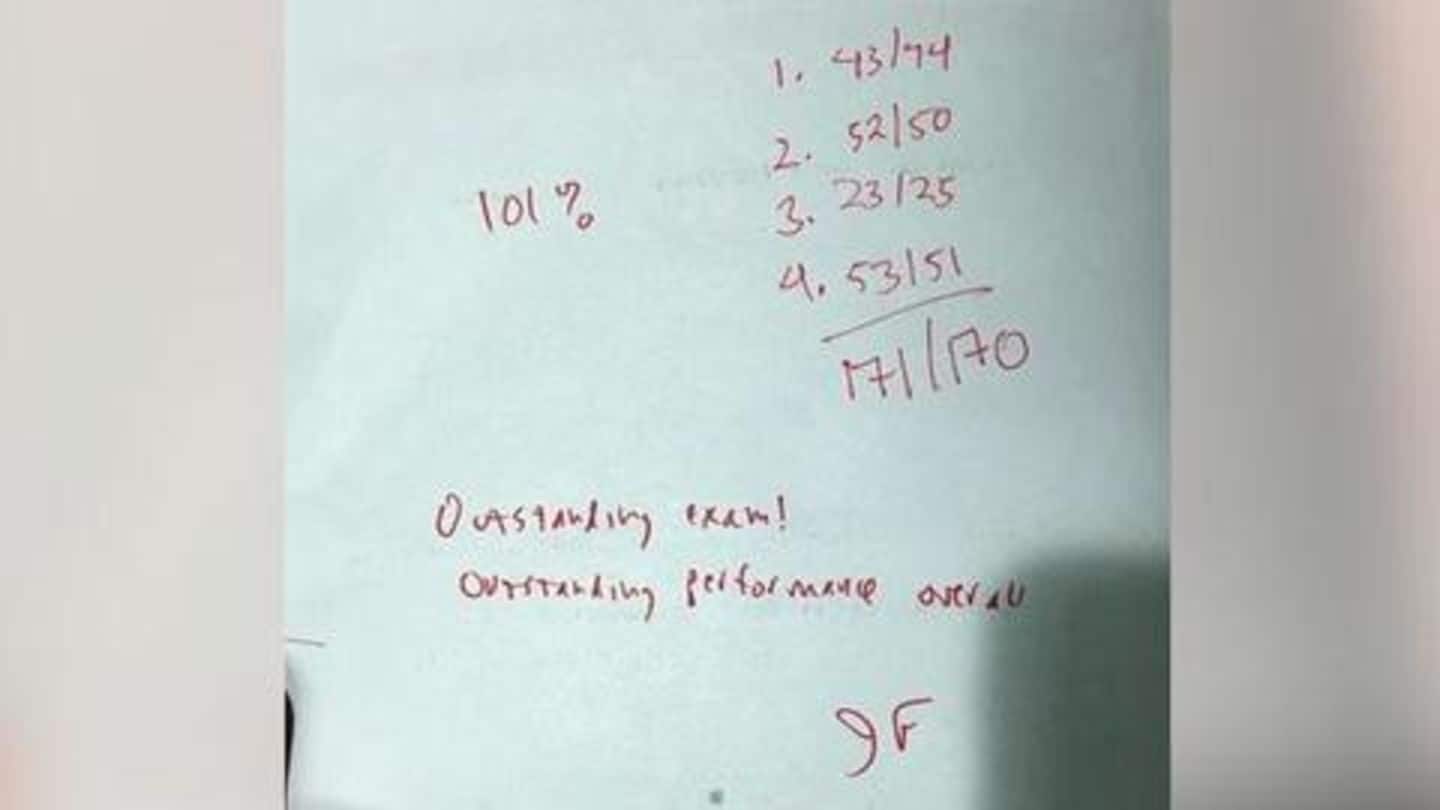 1. 43/44
2. 52/50
101%
3. 23/25
4. 53/51
171/170
Outstanding exam!
Outstanding performance overall
JF